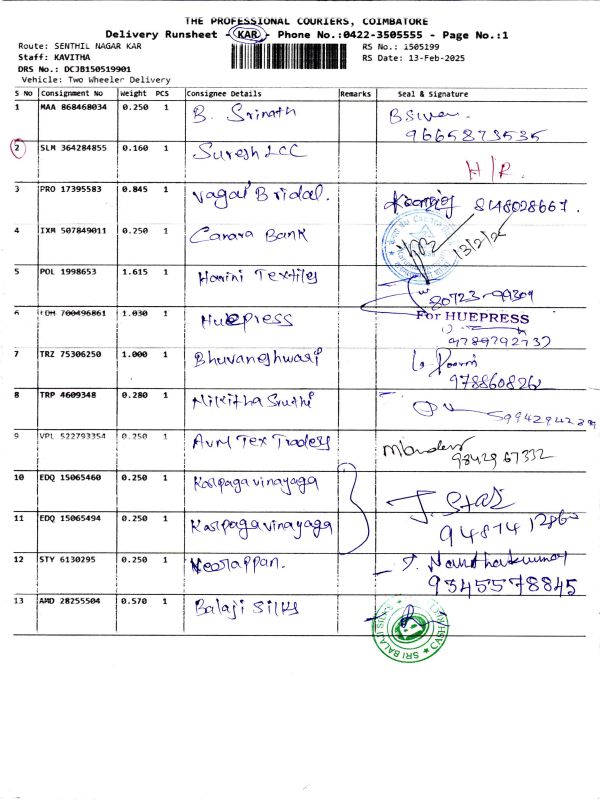 THE PROFESSIONAL COURIERS, COIMBATORE
Delivery Runsheet - KAR - Phone No.:0422-3505555 - Page No.:1
Route: SENTHIL NAGAR KAR
RS No.: 1505199
Staff: KAVITHA
RS Date: 13-Feb-2025
DRS No.: DCJB150519901
Vehicle: Two Wheeler Delivery
S No Consignment No Weight PCS Consignee Details Remarks Seal & Signature
1 MAA 868468034 0.250 1 B. Srinath
9665873535
2 SLM 364284855 0.160 1 Suresh LCC H/R.
3 PRO 17395583 0.845 1 Vagai Bridal. 8148028667.
4 IXM 507849011 0.250 1 Canara Bank 13/2/25
5 POL 1998653 1.615 1 Harini Textiles
80723-99309
6 LDH 700496861 1.030 1 Huepress For HUEPRESS
9789792737
7 TRZ 75306250 1.000 1 Bhuvaneshwari
978860826
8 TRP 4609348 0.280 1 Nikitha Sruthi
9 VPL 522793354 0.250 1 Avm Tex Traders
9842967332
10 EDQ 15065460 0.250 1 Karpagavinayaga
11 EDQ 15065494 0.250 1 Karpagavinayaga
12 STY 6130295 0.250 1 Veerappan.
9345578845
13 AMD 28255504 0.570 1 Balaji Silks
SRI BALAJI SILKS CASH